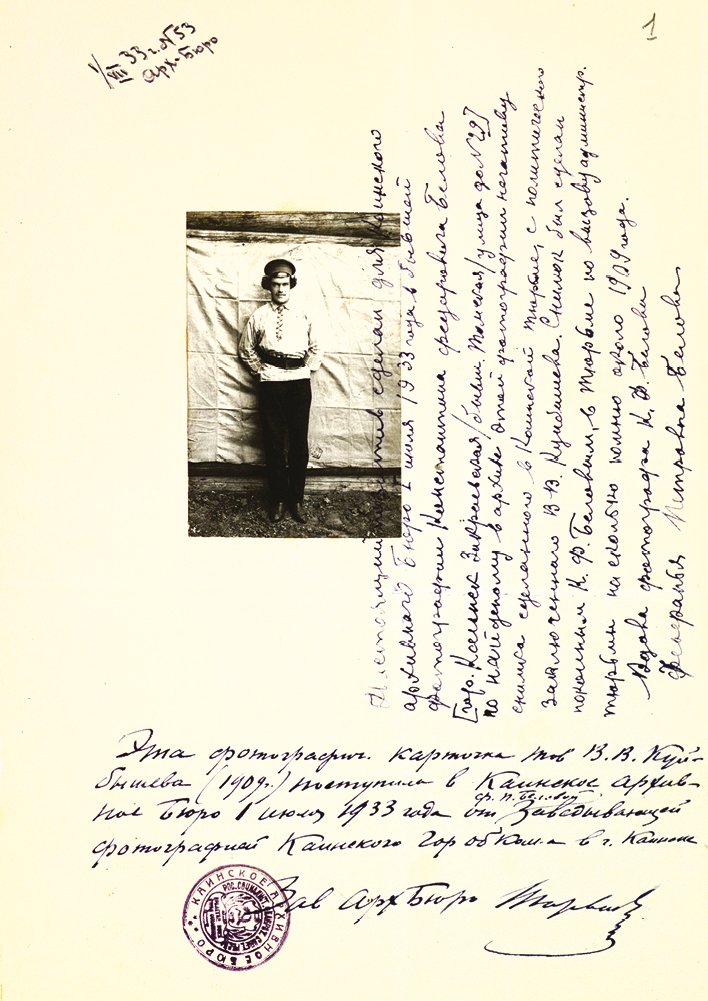 1
1/VII 33 г. N 53
Арх-Бюро
Настоящий позитив сделан для Каинского
архивного Бюро 1 июля 1933 года в бывшей
фотографии Константина Федоровича Белова
[гор. Каинск Закраевская/бывш. Томская/улица до N 29]
по найденому в архиве этой фотографии негативу
снимка сделанного в Каинской тюрьме, с политического
заключенного В.В. Куйбышева. Снимок был сделан
покойным К. Ф. Беловым, в тюрьме по вызову администр.
тюрьмы на сколько помню около 1909 года.
Вдова фотографа К. Ф. Белова
Петровна Белова
Эта фотографич. карточка тов В.В. Куй-
бышева (1909 г.) поступила в Каинское архив-
ное Бюро 1 июля 1933 года от Заведывающей
Ф. П. Беловой
фотографией Каинского Гор обком-а в г. Каинске
Зав АрхБюро
КАИНСКОЕ АРХИВНОЕ БЮРО
РОС. СОЦИАЛИСТ.